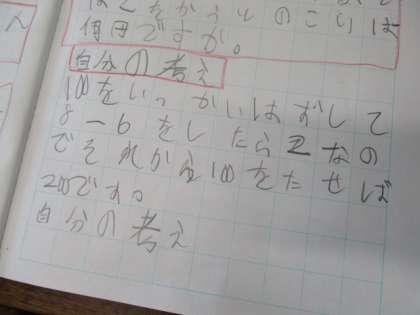 をかうとのこりは
何円ですか。
自分の考え
100をいっかいはずして
8-6をしたら2なの
でそれから100をたせば
200です。
自分の考え